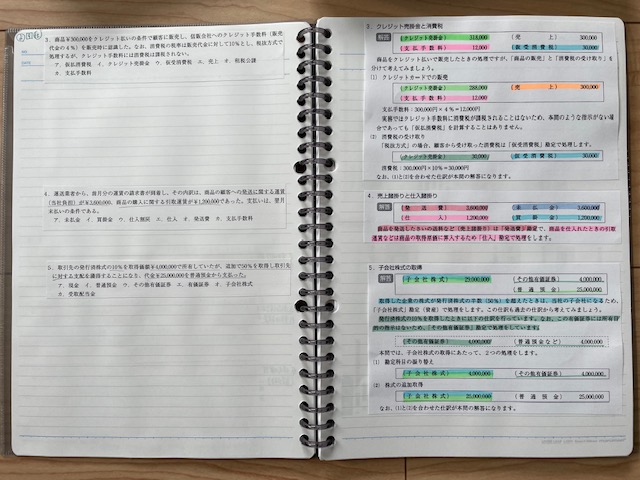 3. 商品¥300,000をクレジット払いの条件で顧客に販売し、信販会社へのクレジット手数料（販売
代金の4％）を販売時に認識した。なお、消費税の税率は販売代金に対して10％とし、税抜方式で
処理するが、クレジット手数料には消費税は課税されない。
ア. 仮払消費税 イ. クレジット売掛金 ウ. 仮受消費税 エ. 売上 オ. 租税公課
カ. 支払手数料
4. 運送業者から、前月分の運賃の請求書が到着し、その内訳は、商品の顧客への発送に関する運賃
（当社負担）が¥3,600,000、商品の購入に関する引取運賃が¥1,200,000であった。支払いは、翌月
末払いの条件である。
ア. 未払金 イ. 買掛金 ウ. 仕入割戻 エ. 仕入 オ. 発送費 カ. 支払手数料
5. 取引先の発行済株式の10％を取得価額¥4,000,000で所有していたが、追加で50％を取得し取引先
に対する支配を獲得することになり、代金¥25,000,000を普通預金から支払った。
ア. 現金 イ. 普通預金 ウ. その他有価証券 エ. 有価証券 オ. 子会社株式
カ. 受取配当金
3. クレジット売掛金と消費税
解答 （クレジット売掛金） 318,000 （売上） 300,000
（支払手数料） 12,000 （仮受消費税） 30,000
商品をクレジット払いで販売したときの処理ですが、「商品の販売」と「消費税の受け取り」を
分けて考えてみましょう。
(1) クレジットカードでの販売
（クレジット売掛金） 288,000 （売上） 300,000
（支払手数料） 12,000
支払手数料：300,000円×4％＝12,000円
実務ではクレジット手数料に消費税が課税されることはないため、本問のような指示がない場
合であっても「仮払消費税」を計算することはありません。
(2) 消費税の受け取り
「税抜方式」の場合、顧客から受け取った消費税は「仮受消費税」勘定で処理します。
（クレジット売掛金） 30,000 （仮受消費税） 30,000
消費税：300,000円×10％＝30,000円
なお、(1)と(2)を合わせた仕訳が本問の解答になります。
4. 売上諸掛りと仕入諸掛り
解答 （発送費） 3,600,000 （未払金） 3,600,000
（仕入） 1,200,000 （買掛金） 1,200,000
商品を発送したさいの送料など（売上諸掛り）は「発送費」勘定で、商品を仕入れたときの引取
運賃などは商品の取得原価に算入するため「仕入」勘定で処理をします。
5. 子会社株式の取得
解答 （子会社株式） 29,000,000 （その他有価証券） 4,000,000
（普通預金） 25,000,000
取得した企業の株式が発行済株式の半数（50％）を超えたときは、当社の子会社になるため、
「子会社株式」勘定（資産）で処理をします。この仕訳も過去の仕訳から考えてみましょう。
発行済株式の10％を取得したときに以下の仕訳を行っています。なお、この有価証券には所有目
的の指示はないため、「その他有価証券」勘定で処理をしています。
（その他有価証券） 4,000,000 （普通預金など） 4,000,000
本問では、子会社株式の取得にあたって、2つの処理をします。
(1) 勘定科目の振り替え
（子会社株式） 4,000,000 （その他有価証券） 4,000,000
(2) 株式の追加取得
（子会社株式） 25,000,000 （普通預金） 25,000,000
なお、(1)と(2)を合わせた仕訳が本問の解答になります。